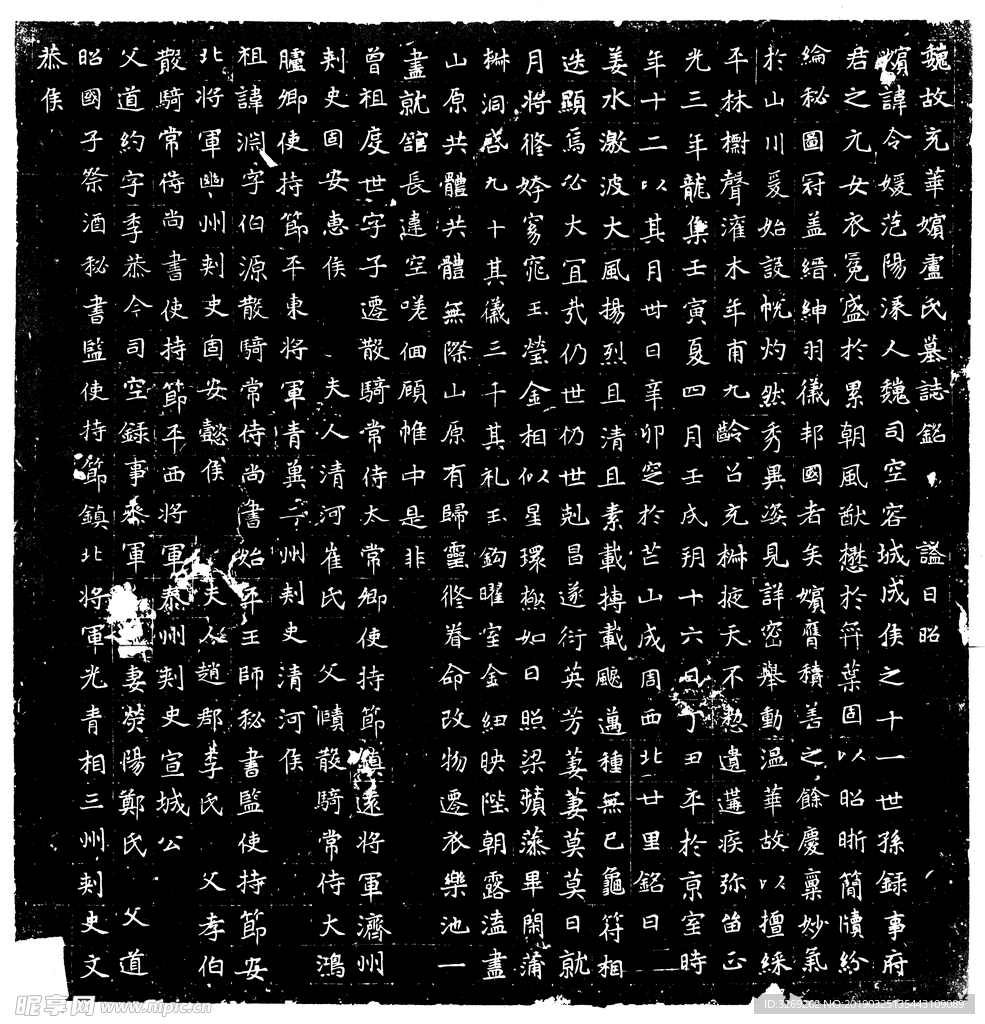 魏故充華嬪盧氏墓誌銘　謚曰昭
嬪諱令媛范陽涿人魏司空容城成侯之十一世孫録事府
君之元女衣冕盛於累朝風猷懋於弈葉固以昭晰簡牘紛
綸秘圖冠盖縉紳羽儀邦國者矣嬪膺積善之餘慶稟妙氣
於山川爰始設帨灼然秀異姿見詳密舉動溫華故以擅綵
平林樹聲灌木年甫九齡召充椒掖天不憖遺遘疾弥留正
光三年龍集壬寅夏四月壬戌朔十六日丁丑卒於京室時
年十二以其月卅日辛卯窆於芒山成周西北廿里銘曰
姜水激波大風揚烈且清且素載摶載颺邁種無已龜符相
迭顯焉必大宜哉仍世仍世剋昌遂衍英芳萋萋莫莫日就
月將脩姱窈窕玉瑩金相似星環極如日照梁蘋藻畢閑蒲
椒洞啓九十其儀三千其礼玉鈎曜室金紐映陛朝露溘盡
山原共體共體無際山原有歸靈脩眷命改物遷衣樂池一
盡就舘長違空嗟佪顧帷中是非
曾祖度世字子遷散騎常侍太常卿使持節鎮遠將軍濟州
刺史固安惠侯　夫人清河崔氏　父賾散騎常侍大鴻
臚卿使持節平東將軍青冀二州刺史清河侯
祖諱淵字伯源散騎常侍尚書始平王師秘書監使持節安
北將軍幽州刺史固安懿侯　夫人趙郡李氏　父孝伯
散騎常侍尚書使持節平西將軍泰州刺史宣城公
父道約字季恭今司空録事參軍　妻滎陽鄭氏　父道
昭國子祭酒秘書監使持節鎮北將軍光青相三州刺史文
恭侯
昵享网 www.nipic.cn
ID:3269202 NO:20190325135443109089